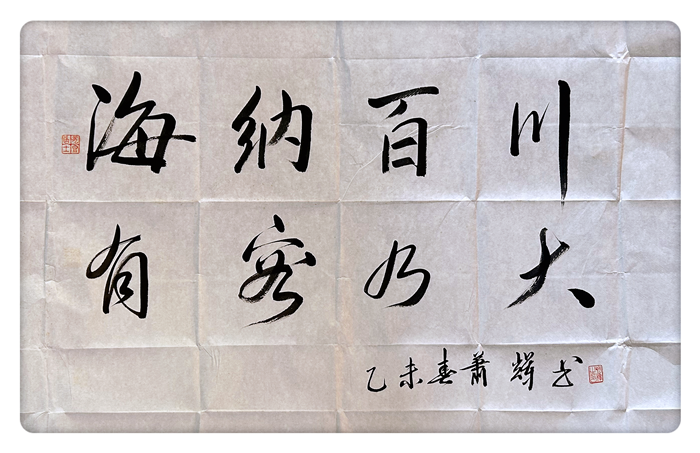 海纳百川
有容乃大
乙未春萧辉书